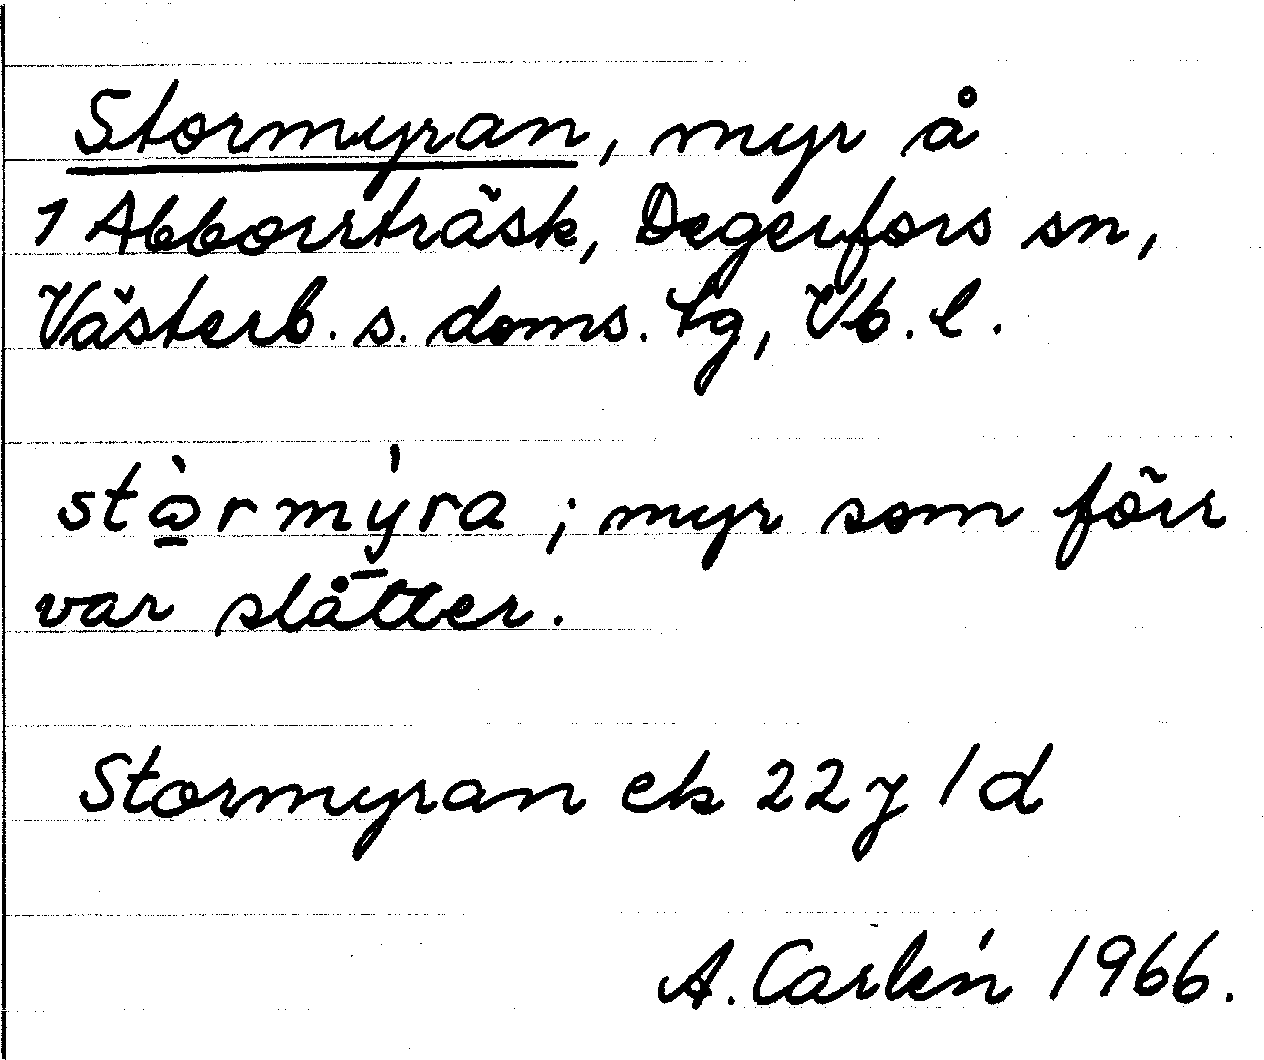 Stormyran, myr å
1 Abborrträsk, Degerfors sn,
Västerb. s. doms. tg, Vb. l.
stɷ̱̀rmý̱ra ; myr som förr
var slåtter.
Stormyran ek 22 y /d
A. Carlén 1966.